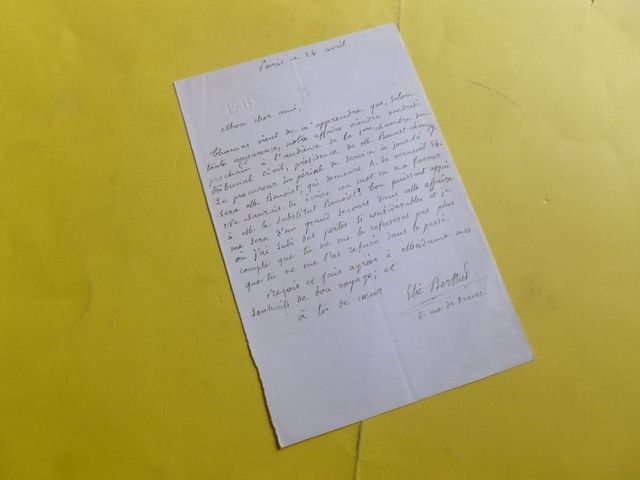 Paris ce 24 avril
EB
Mon cher ami,
Thomas vient de m'apprendre que, selon
toute apparence, notre affaire viendra vendredi
prochain à l'audience de la 1ere chambre du
tribunal civil, présidence de Mr. Benoist-champy.
Le procureur impérial de service ce jour là
sera Mr. Benoist, qui demeure r. de Verneuil 34.
Saurais-tu écrire un mot en ma faveur
à Mr. le substitut Benoist? ton puissant appui
me sera d'un grand secours dans cette affaire
où j'ai subi des pertes si considérables et je
compte que tu ne me le refuseras pas plus
que tu ne me l'as refusé dans le passé.
Reçois et fais agréer à Madame mes
souhaits de bon voyage, et
à toi de cœur
Elie Berthet
6. rue de